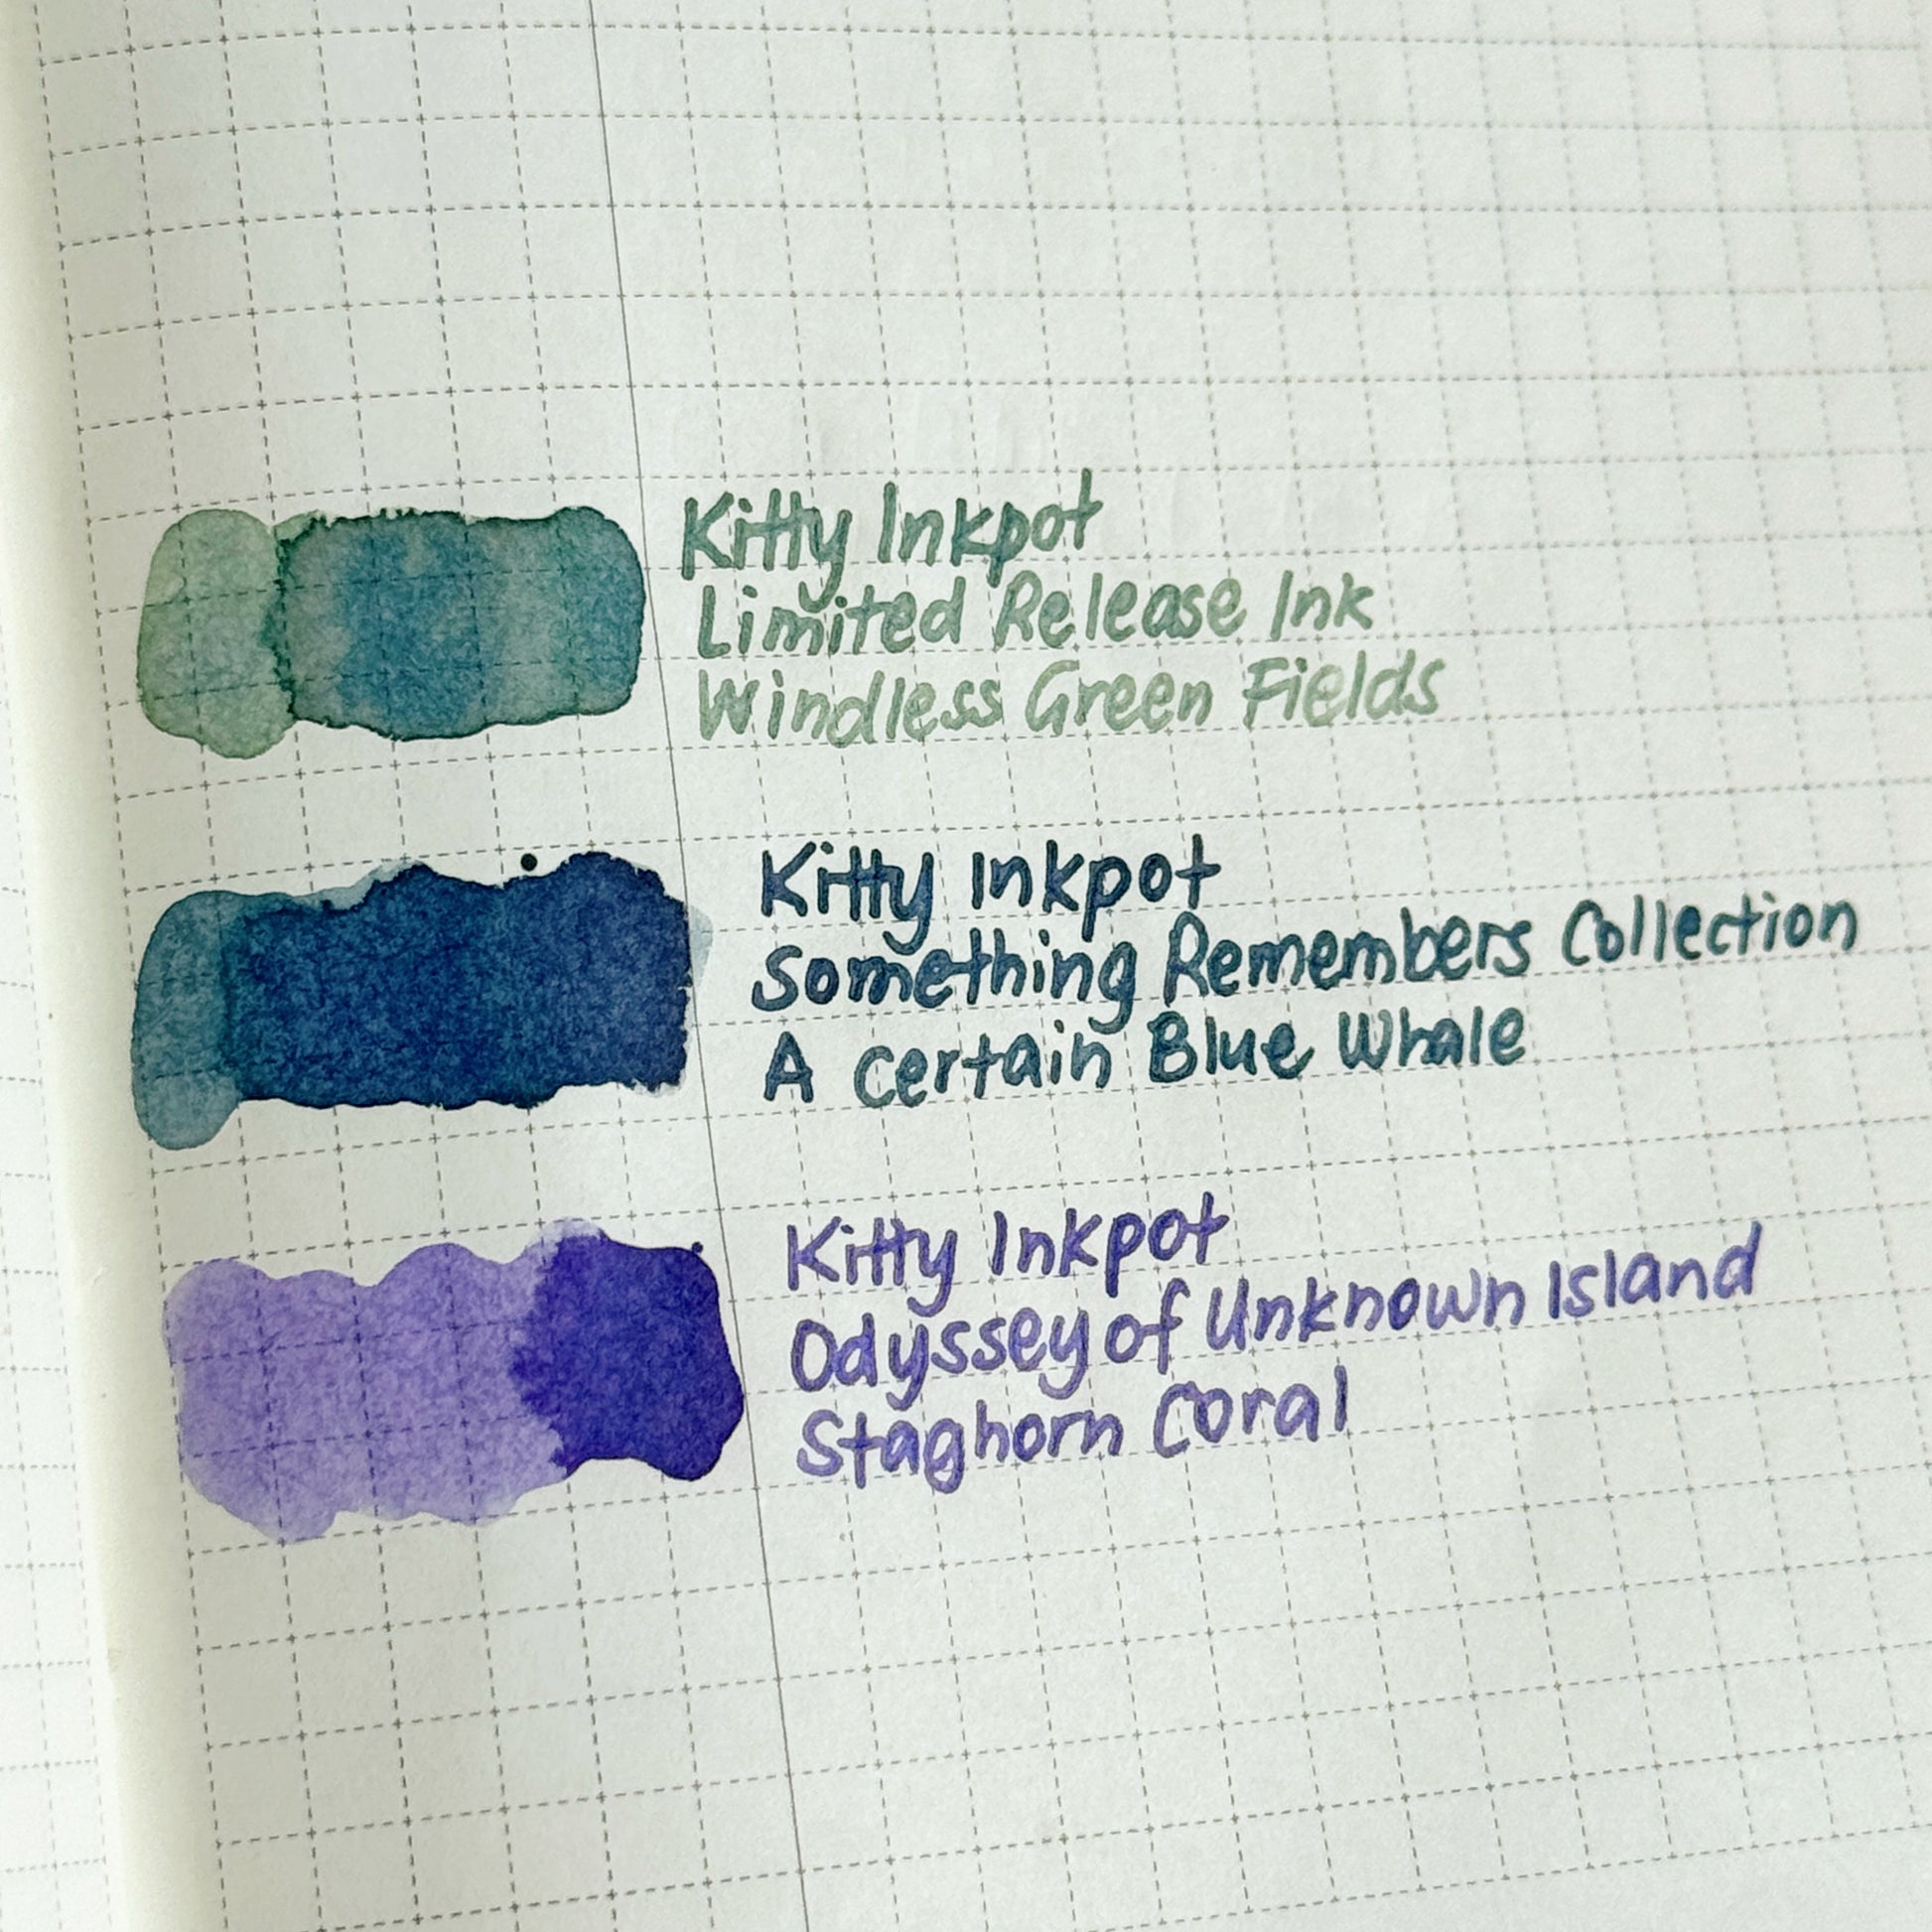 Kitty Inkpot
Limited Release Ink
Windless Green Fields
Kitty Inkpot
Something Remembers Collection
A certain Blue Whale
Kitty Inkpot
Odyssey of Unknown Island
Staghorn Coral